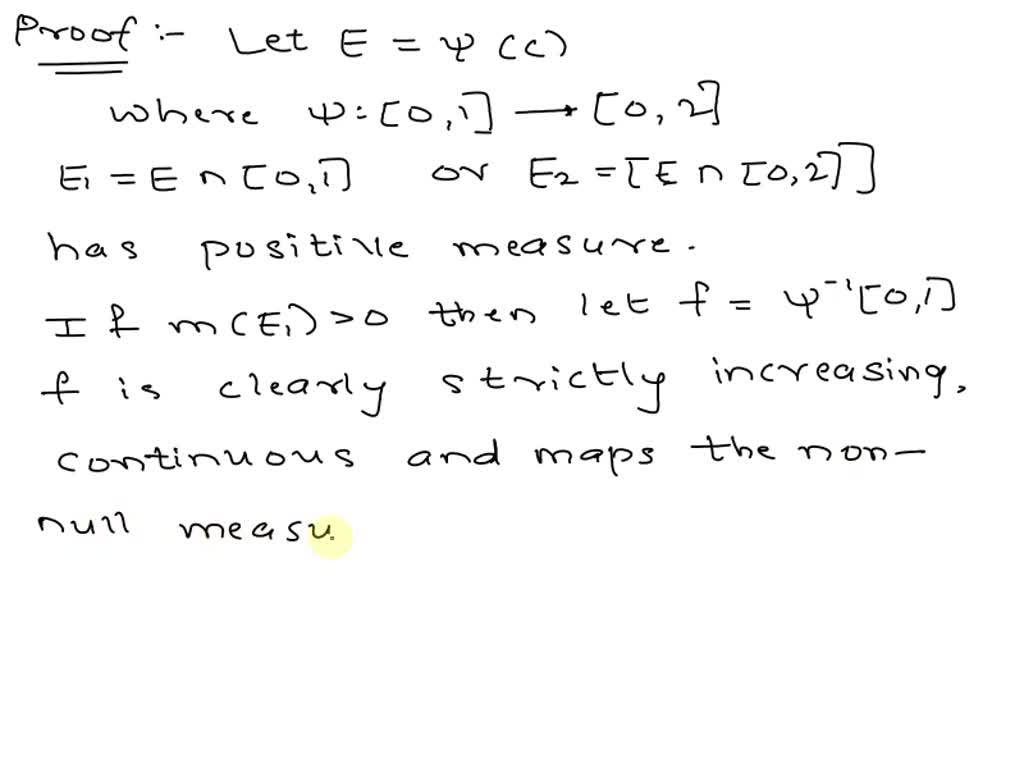 Proof :- Let E = ψ (c)
where ψ : [0,1] → [0,2]
E₁ = E ∩ [0,1] or E₂ = [E ∩ [0,2]]
has positive measure.
If m(E₁) > 0 then let f = ψ⁻¹[0,1]
f is clearly strictly increasing,
continuous and maps the non-
null measu